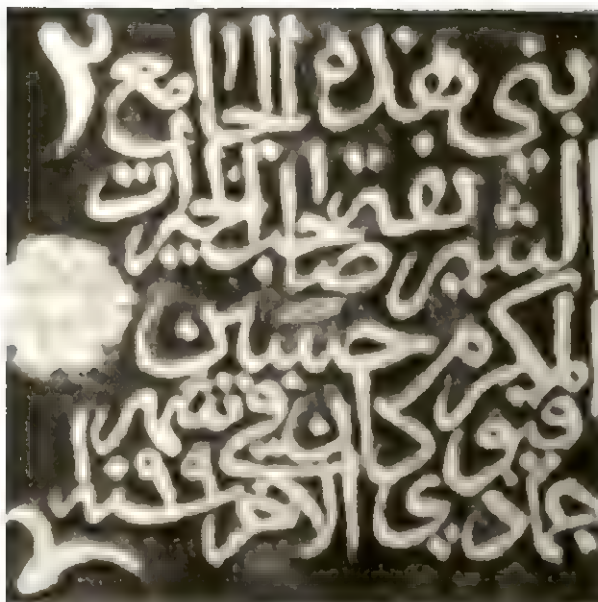 بني هذه الجامع ٢
الشريفة صاحب الخيرات
المكرم حسين
قيودان في شهر
جمادي الاخر